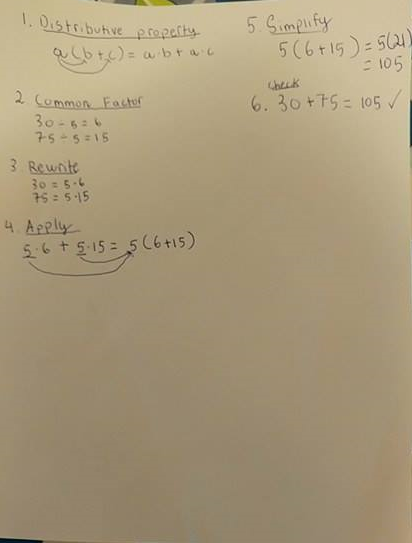 1. Distributive property
a(b+c) = a·b + a·c
2 Common Factor
30 ÷ 5 = 6
75 ÷ 5 = 15
3 Rewrite
30 = 5·6
75 = 5·15
4. Apply
5·6 + 5·15 = 5(6+15)
5. Simplify
5(6+15) = 5(21)
= 105
check
6. 30+75 = 105 ✓